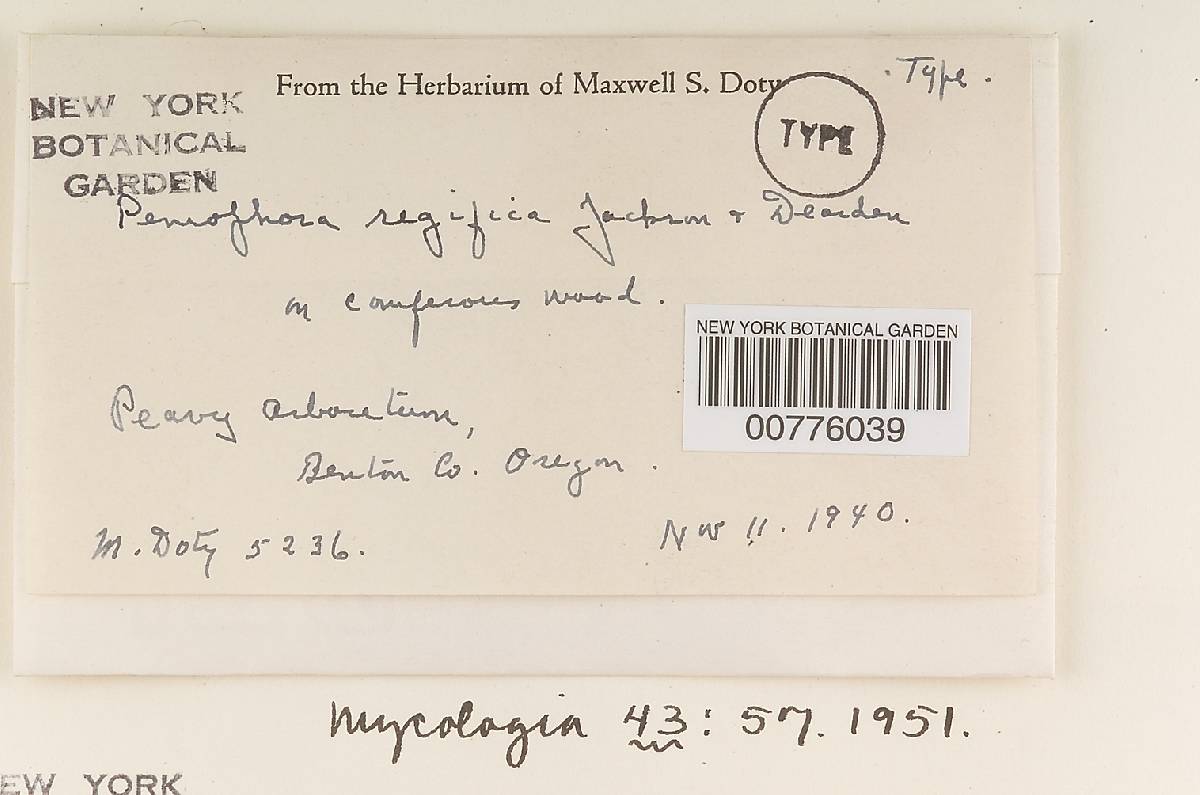 From the Herbarium of Maxwell S. Doty
· Type .
NEW YORK
BOTANICAL
GARDEN
TYPE
Peniophora regifica Jackson & Dearden
on coniferous wood.
NEW YORK BOTANICAL GARDEN
00776039
Peavy arboretum,
Benton Co. Oregon.
M. Doty 5236.
Nov 11. 1940.
Mycologia 43: 57. 1951.
EW YORK